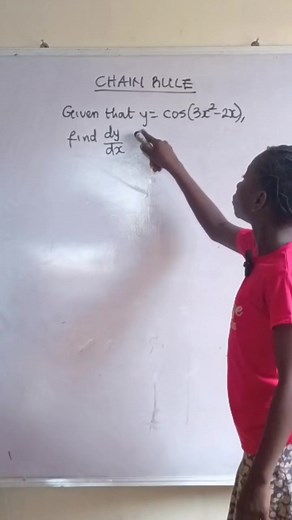 CHAIN RULE
Given that y = cos(3x²-2x),
find dy/dx